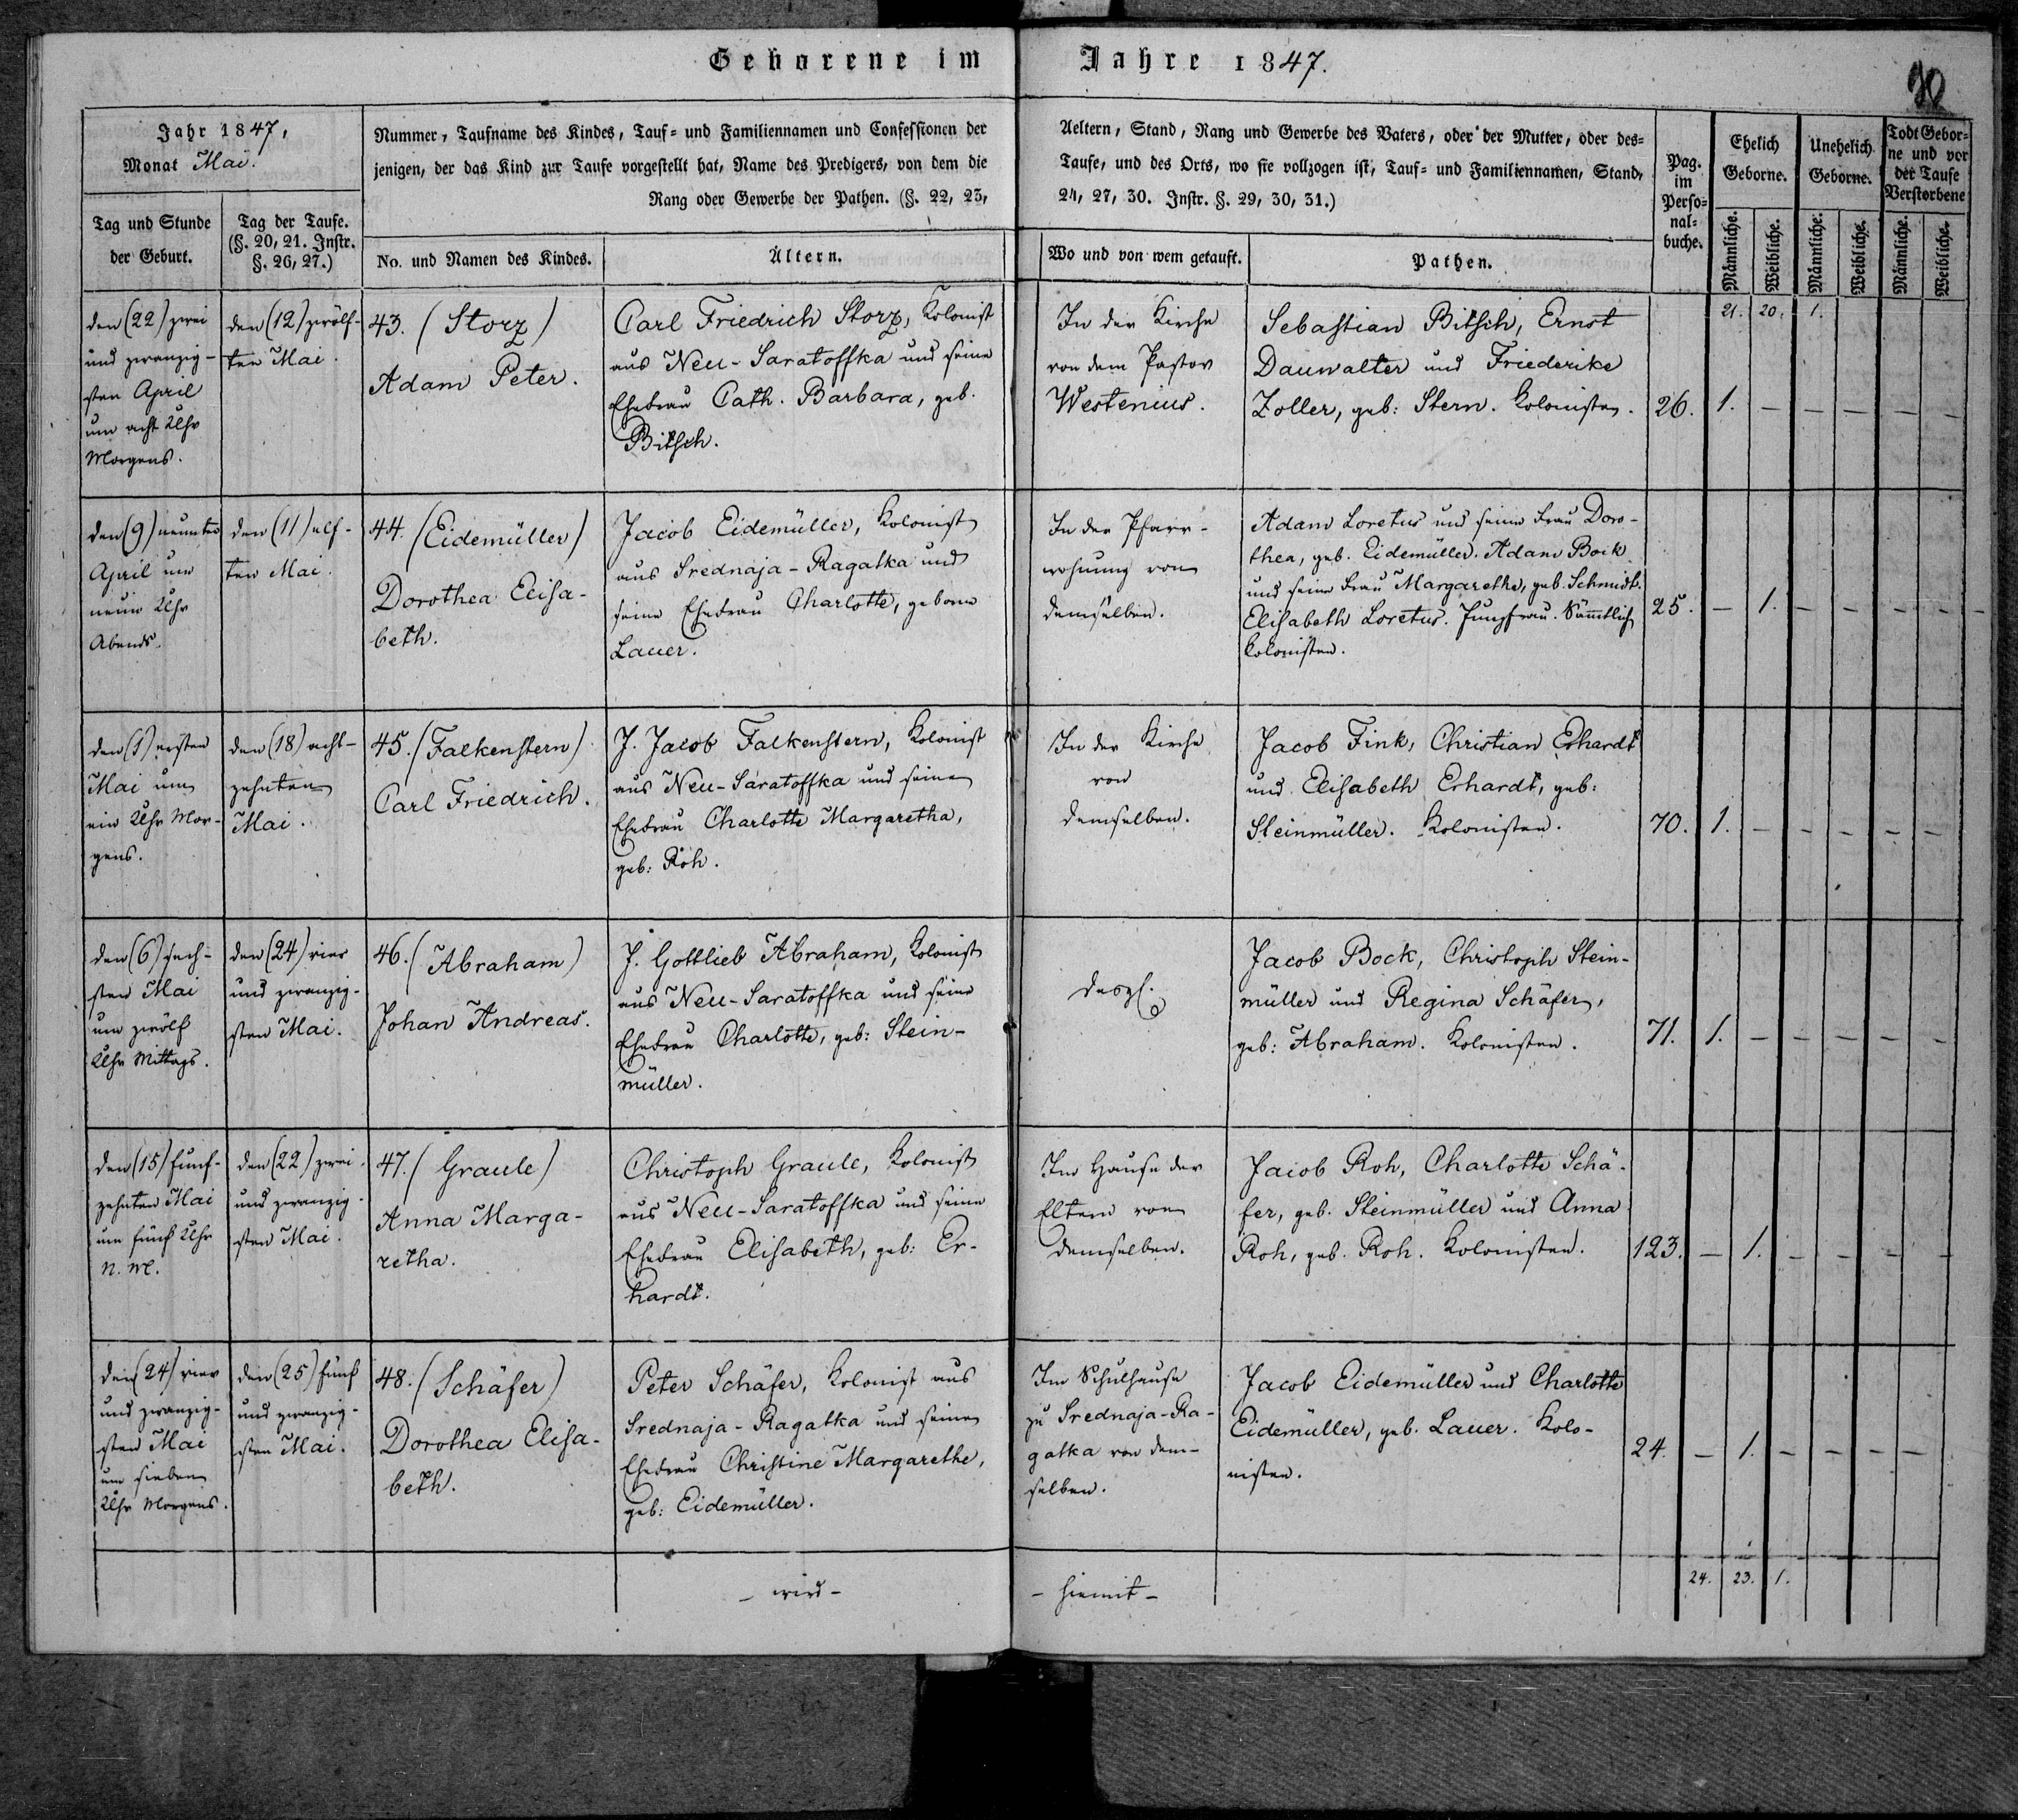 Geborene im Jahre 1847.
90
Jahr 1847,
Monat Mai.
Tag und Stunde
der Geburt.
Tag der Taufe.
(§. 20, 21. Instr.
§. 26, 27.)
Nummer, Taufname des Kindes, Tauf= und Familiennamen und Confessionen der
jenigen, der das Kind zur Taufe vorgestellt hat, Name des Predigers, von dem die
Rang oder Gewerbe der Pathen. (§. 22, 23,
No. und Namen des Kindes.
Ältern.
Aeltern, Stand, Rang und Gewerbe des Vaters, oder der Mutter, oder des=
Taufe, und des Orts, wo sie vollzogen ist, Tauf= und Familiennamen, Stand,
24, 27, 30. Instr. §. 29, 30, 31.)
Wo und von wem getauft.
Pathen.
Pag.
im
Perso=
nal=
buche.
Ehelich
Geborne.
Unehelich
Geborne.
Todt Gebor=
ne und vor
der Taufe
Verstorbene
Männliche.
Weibliche.
Männliche.
Weibliche.
Männliche.
Weibliche.
21. 20. 1.
den (22) zwei
und zwanzig-
sten April
um acht Uhr
Morgens.
den (12) zwölf-
ten Mai.
43. (Storz)
Adam Peter.
Carl Friedrich Storz, Kolonist
aus Neu-Saratoffka und seine
Ehefrau Cath. Barbara, geb.
Bitsch.
In der Kirche
von dem Pastor
Westenius.
Sebastian Bitsch, Ernst
Dauwalter und Friederike
Zoller, geb: Stern. Kolonisten.
26. 1. – – – – –
den (9) neunten
April um
neun Uhr
Abends.
den (11) elf-
ten Mai.
44. (Eidemüller)
Dorothea Elisa-
beth.
Jacob Eidemüller, Kolonist
aus Srednaja-Ragatka und
seine Ehefrau Charlotte, geborne
Lauer.
In der Pfarr-
wohnung von
demselben.
Adam Loretus und seine Frau Doro-
thea, geb. Eidemüller. Adam Bock
und seine Frau Margarethe, geb. Schmidt.
Elisabeth Loretus. Jungfrau. Sämtlich
Kolonisten.
25. – 1. – – – –
den (1) ersten
Mai um
ein Uhr Mor-
gens.
den (18) acht-
zehnten
Mai.
45. (Falkenstern)
Carl Friedrich.
J. Jacob Falkenstern, Kolonist
aus Neu-Saratoffka und seine
Ehefrau Charlotte Margaretha,
geb: Roh.
In der Kirche
von
demselben.
Jacob Fink, Christian Erhardt
und Elisabeth Erhardt, geb:
Steinmüller. Kolonisten.
70. 1. – – – – –
den (6) sech-
sten Mai
um zwölf
Uhr Mittags.
den (24) vier
und zwanzig-
sten Mai.
46. (Abraham)
Johan Andreas.
J. Gottlieb Abraham, Kolonist
aus Neu-Saratoffka und seine
Ehefrau Charlotte, geb: Stein-
müller.
desgl.
Jacob Bock, Christoph Stein-
müller und Regina Schäfer,
geb: Abraham. Kolonisten.
71. 1. – – – – –
den (15) fünf-
zehnten Mai
um fünf Uhr
N. M.
den (22) zwei
und zwanzig-
sten Mai.
47. (Graule)
Anna Marga-
retha.
Christoph Graule, Kolonist
aus Neu-Saratoffka und seine
Ehefrau Elisabeth, geb: Er-
hardt.
Im Hause der
Eltern von
demselben.
Jacob Roh, Charlotte Schä-
fer, geb. Steinmüller und Anna
Roh, geb. Roh. Kolonisten.
123. – 1. – – – –
den (24) vier
und zwanzig-
sten Mai
um sieben
Uhr Morgens.
den (25) fünf
und zwanzig-
sten Mai.
48. (Schäfer)
Dorothea Elisa-
beth.
Peter Schäfer, Kolonist aus
Srednaja-Ragatka und seine
Ehefrau Christine Margarethe,
geb: Eidemüller.
Im Schulhause
zu Srednaja-Ra-
gatka von dem-
selben.
Jacob Eidemüller und Charlotte
Eidemüller, geb. Lauer. Kolo-
nisten.
24. – 1. – – – –
– wird – – hiemit –
24. 23. 1.